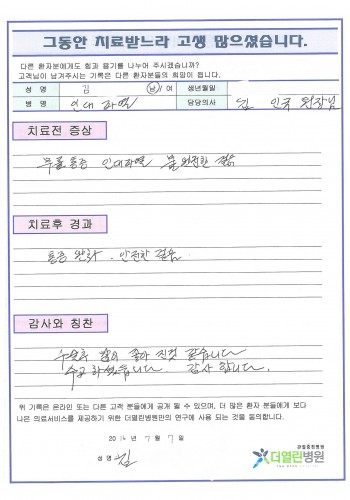 그동안 치료받느라 고생 많으셨습니다.
다른 환자분에게도 힘과 용기를 나누어 주시겠습니까?
고객님이 남겨주시는 기록은 다른 환자분들의 희망이 됩니다.
성 명 김 남/여 생년월일
병 명 인대 파열 담당의사 김 인국 원장님
치료전 증상
무릎 통증 인대파열 불완전한 걸음
치료후 경과
통증 완화. 안전한 걸음
감사와 칭찬
수술후 많이 좋아 진것 같습니다
수고 하셨습니다. 감사 합니다.
위 기록은 온라인 또는 다른 고객 분들에게 공개 될 수 있으며, 더 많은 환자 분들에게 보다
나은 의료서비스를 제공하기 위한 더열린병원만의 연구에 사용 되는 것을 동의합니다.
2016년 7월 7일
성 명 김
관절중점병원
더열린병원